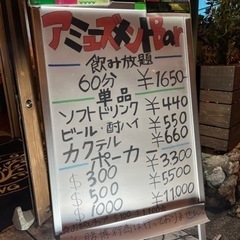 アミューズメントBar
飲み放題
60分 ¥1650
単品
ソフトドリンク ¥440
ビール・酎ハイ ¥550
カクテル ¥660
ポーカー
$300 ¥3300
$500 ¥5500
$1000 ¥11000